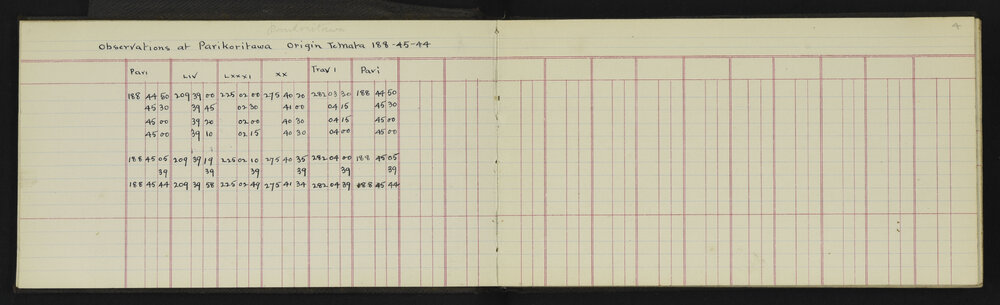 Parikoritawa
4
Observations at Parikoritawa Origin TeMata 188-45-44
Pari LIV LXXXI XX Trav I Pari
188 44 50 209 39 00 225 02 00 275 40 20 282 03 30 188 44 50
45 30 39 45 02 30 41 00 04 15 45 30
45 00 39 20 02 00 40 30 04 15 45 00
45 00 39 10 02 15 40 30 04 00 45 00
188 45 05 209 39 19 225 02 10 275 40 35 282 04 00 188 45 05
39 39 39 39 39 39
188 45 44 209 39 58 225 02 49 275 41 34 282 04 39 188 45 44